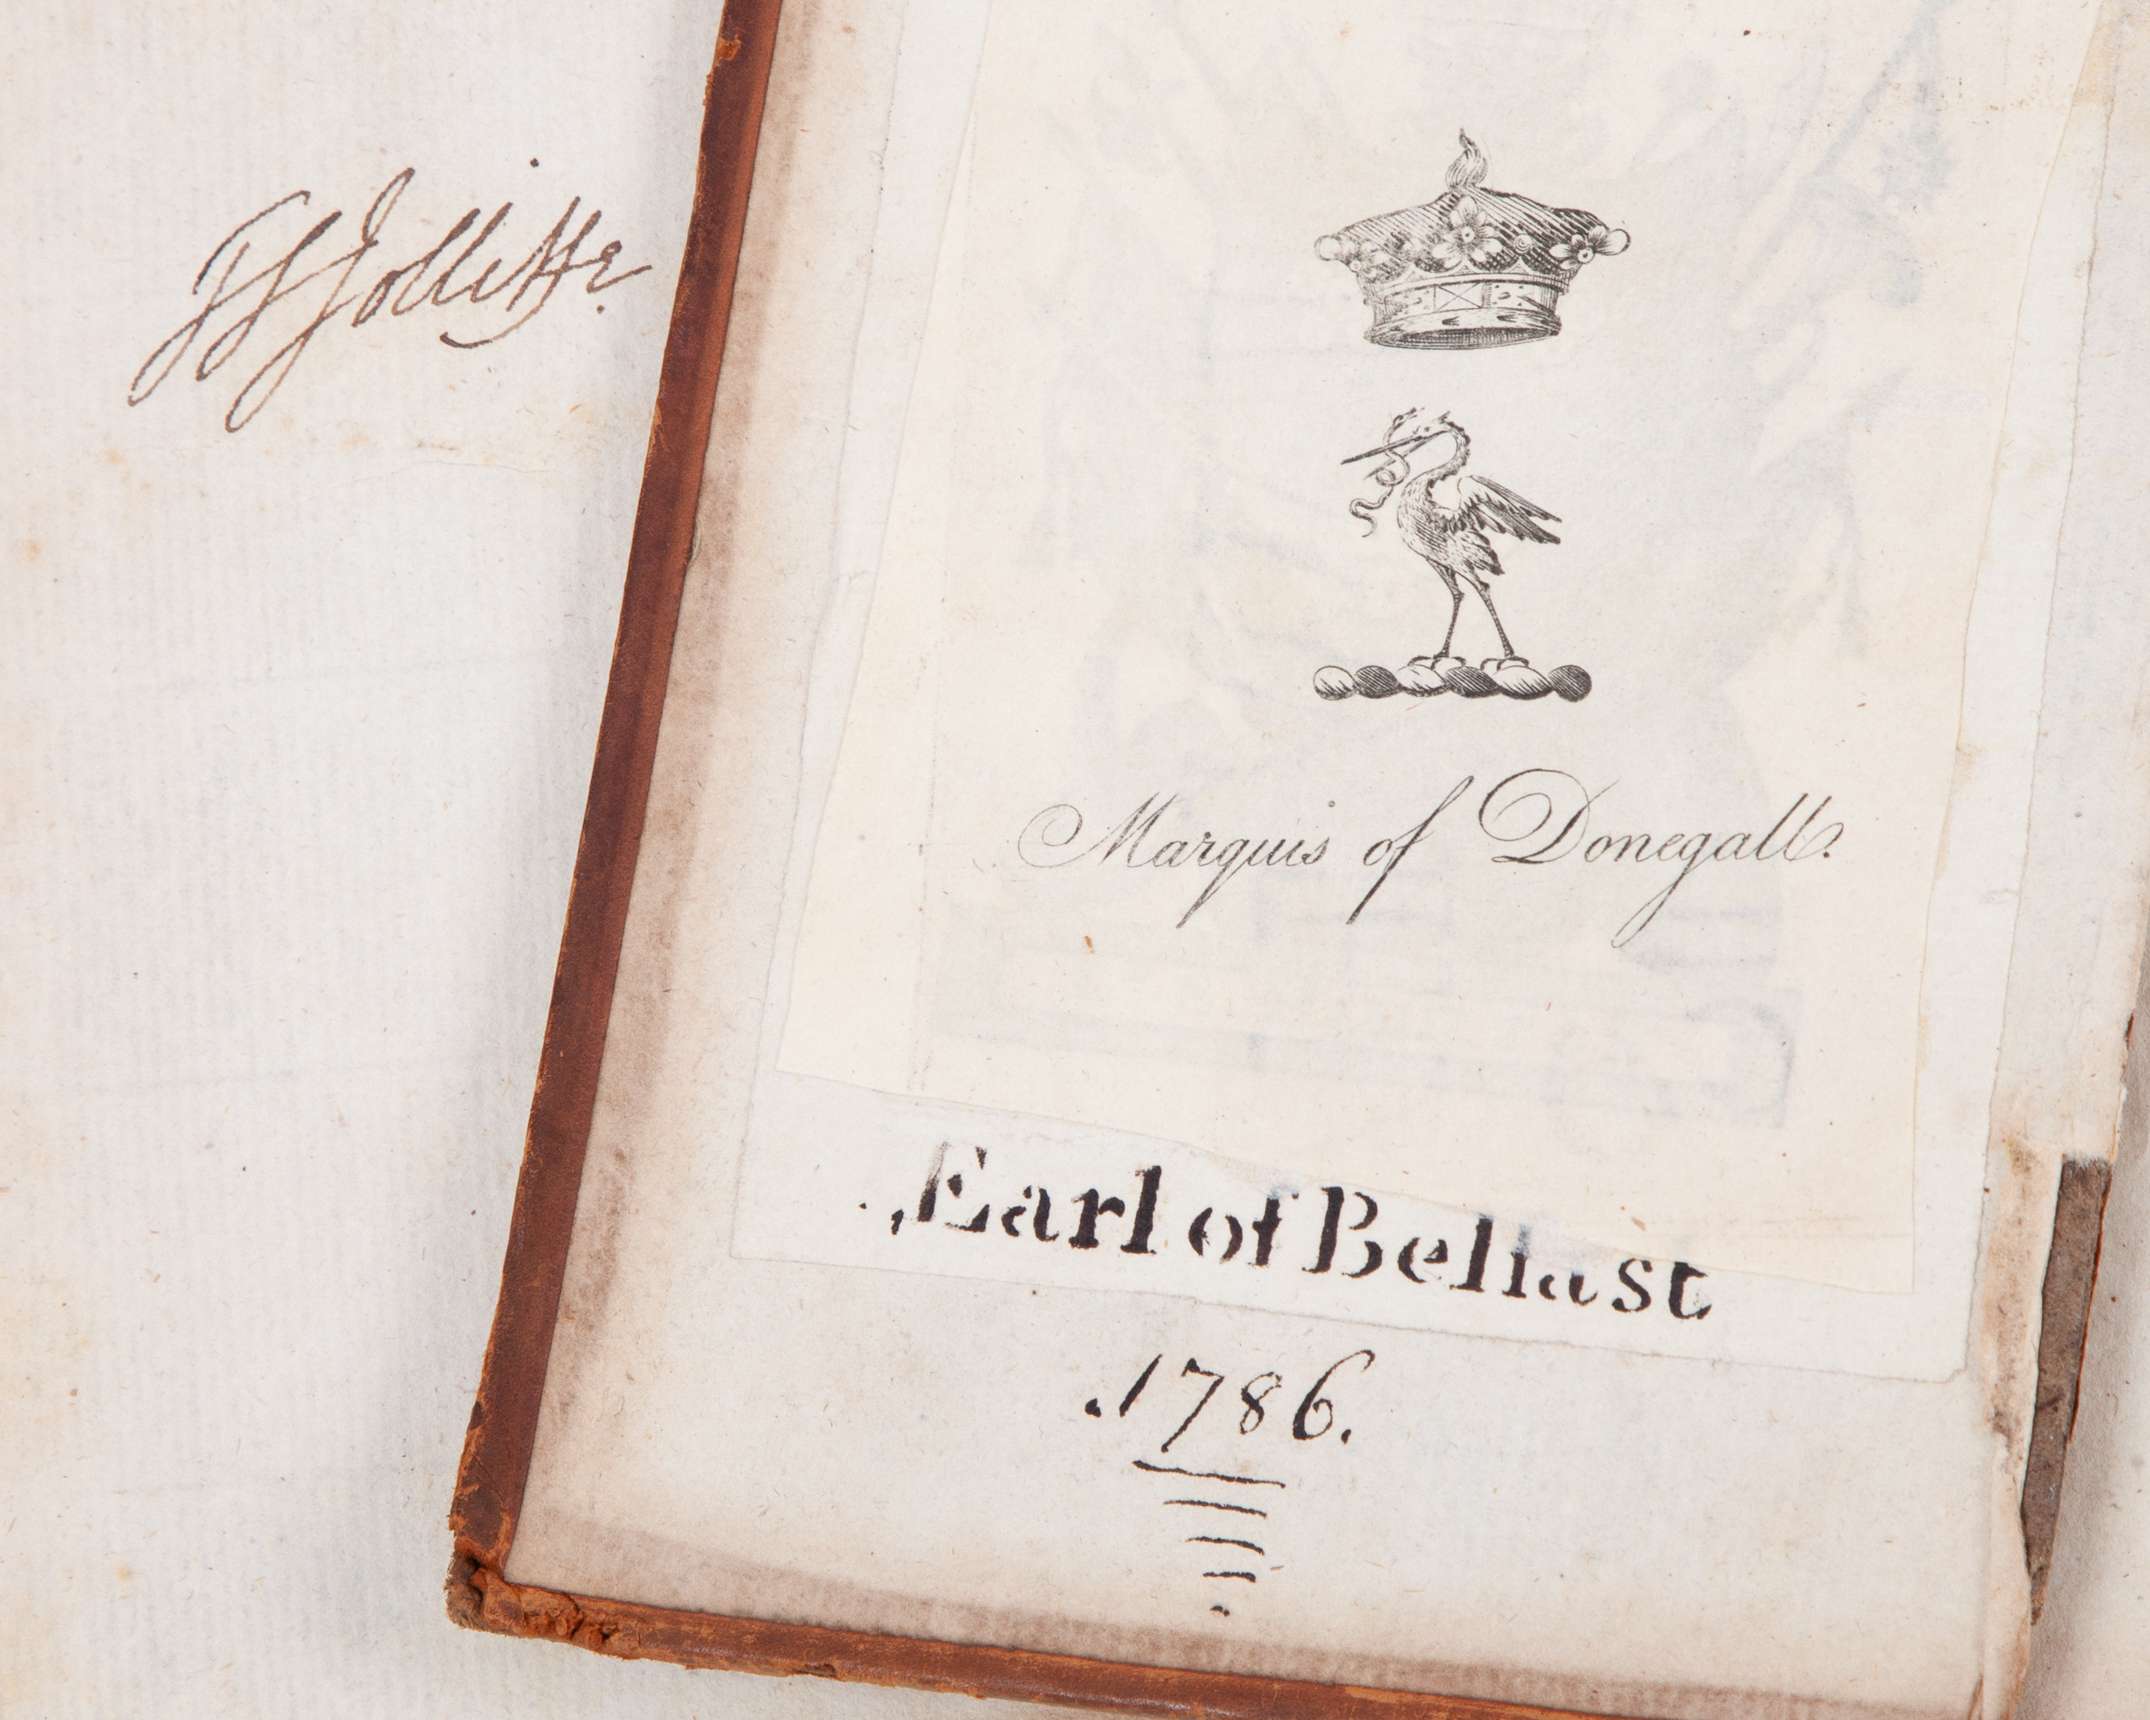 Marquis of Donegall.
Earl of Belfast
.1786.